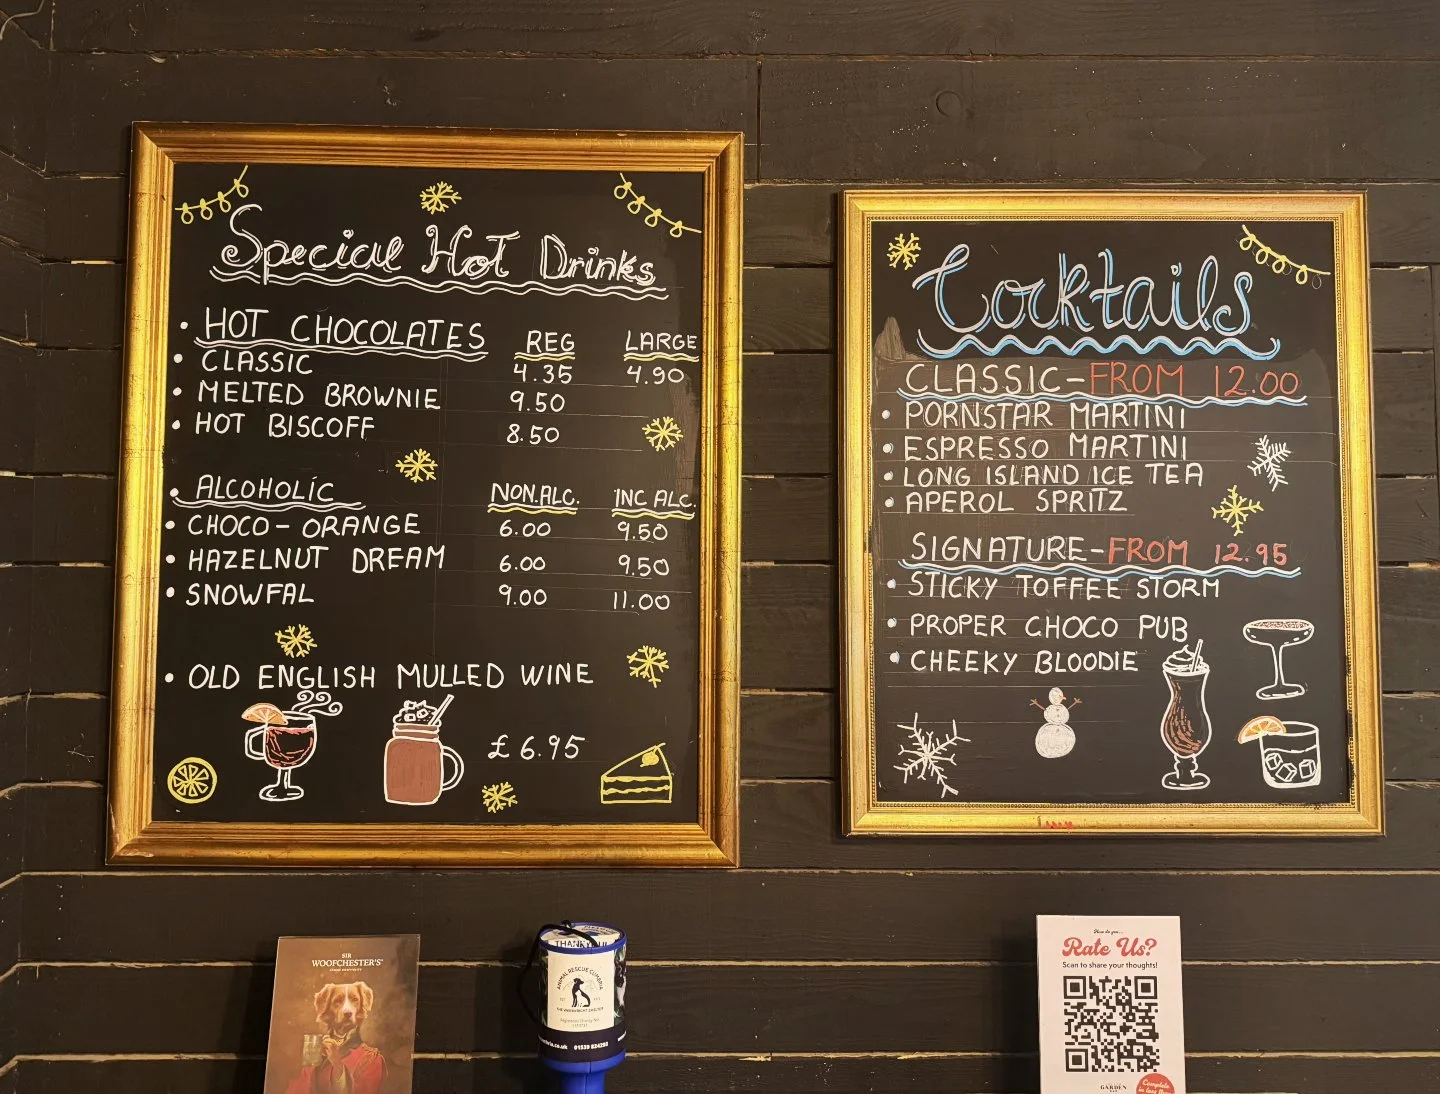 Special Hot Drinks
• HOT CHOCOLATES REG LARGE
• CLASSIC 4.35 4.90
• MELTED BROWNIE 9.50
• HOT BISCOFF 8.50
• ALCOHOLIC NON.ALC. INC ALC.
• CHOCO-ORANGE 6.00 9.50
• HAZELNUT DREAM 6.00 9.50
• SNOWFAL 9.00 11.00
• OLD ENGLISH MULLED WINE
£6.95
Cocktails
CLASSIC-FROM 12.00
• PORNSTAR MARTINI
• ESPRESSO MARTINI
• LONG ISLAND ICE TEA
• APEROL SPRITZ
SIGNATURE-FROM 12.95
• STICKY TOFFEE STORM
• PROPER CHOCO PUB
• CHEEKY BLOODIE
SIR
WOOFCHESTER'S
THANK
ANIMAL RESCUE CUMBRIA
THE WAINWRIGHT SHELTER
Registered Charity No.
.co.uk 01539 824293
How do you...
Rate Us?
Scan to share your thoughts!
GARDEN
Complete